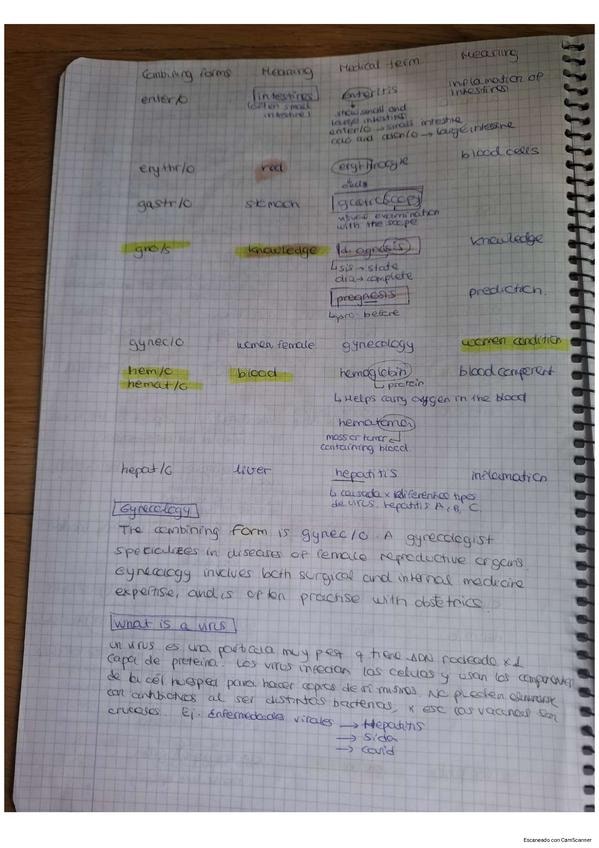 Combining forms Meaning Medical term Meaning
enter/o intestines enteritis inflamation of
(often small intestines
intestine)
↓ show small and
large intestine
enter/o → small intestine
colo and colon/o → large intestine
erythr/o red erythrocyte blood cells
gastr/o stomach gastroscopy
visual examination
with the scope
gno/s knowledge diagnosis knowledge
↳ sis → state
dia → complete
prognosis prediction.
↳ pro: before
gynec/o women female gynecology women condition
hem/o blood hemoglobin blood component
hemat/o ↳ protein
↳ Helps carry oxygen in the blood
hematoma
mass or tumor
containing blood
hepat/o liver hepatitis inflamation
↳ causada x diferentes tipos
de virus. hepatitis A, B, C.
Gynecology
The combining form is gynec/o. A gynecologist
specializes in diseases of female reproductive organs.
Gynecology involves both surgical and internal medicine
expertise, and is often practise with obstetrics.
What is a virus
Un virus es una partícula muy peq q tiene ADN rodeado x 1
capa de proteína. Los virus infectan las celulas y usan los componentes
de la cél huesped para hacer copias de si mismos. No pueden eliminarse
con antibioticos al ser distintos bacterias, x eso las vacunas son
cruciales. Ej. Enfermedades virales → Hepatitis
→ Sida
→ Covid
Escaneado con CamScanner